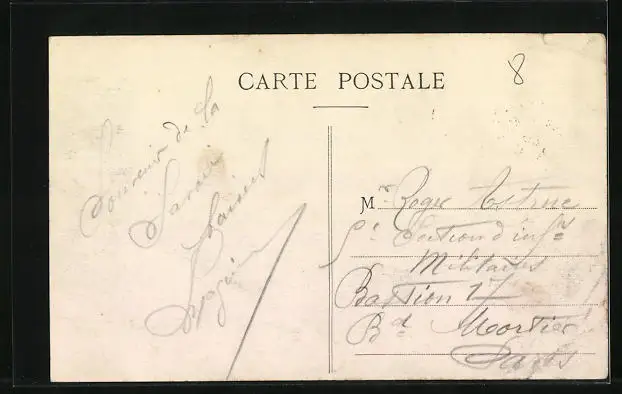 CARTE POSTALE
8
Souvenir de la
Savoie
Baisers
M.r Roger Astruc
Section d'inf.rs
Militaires
Bastion 17
B.d Mortier
Paris